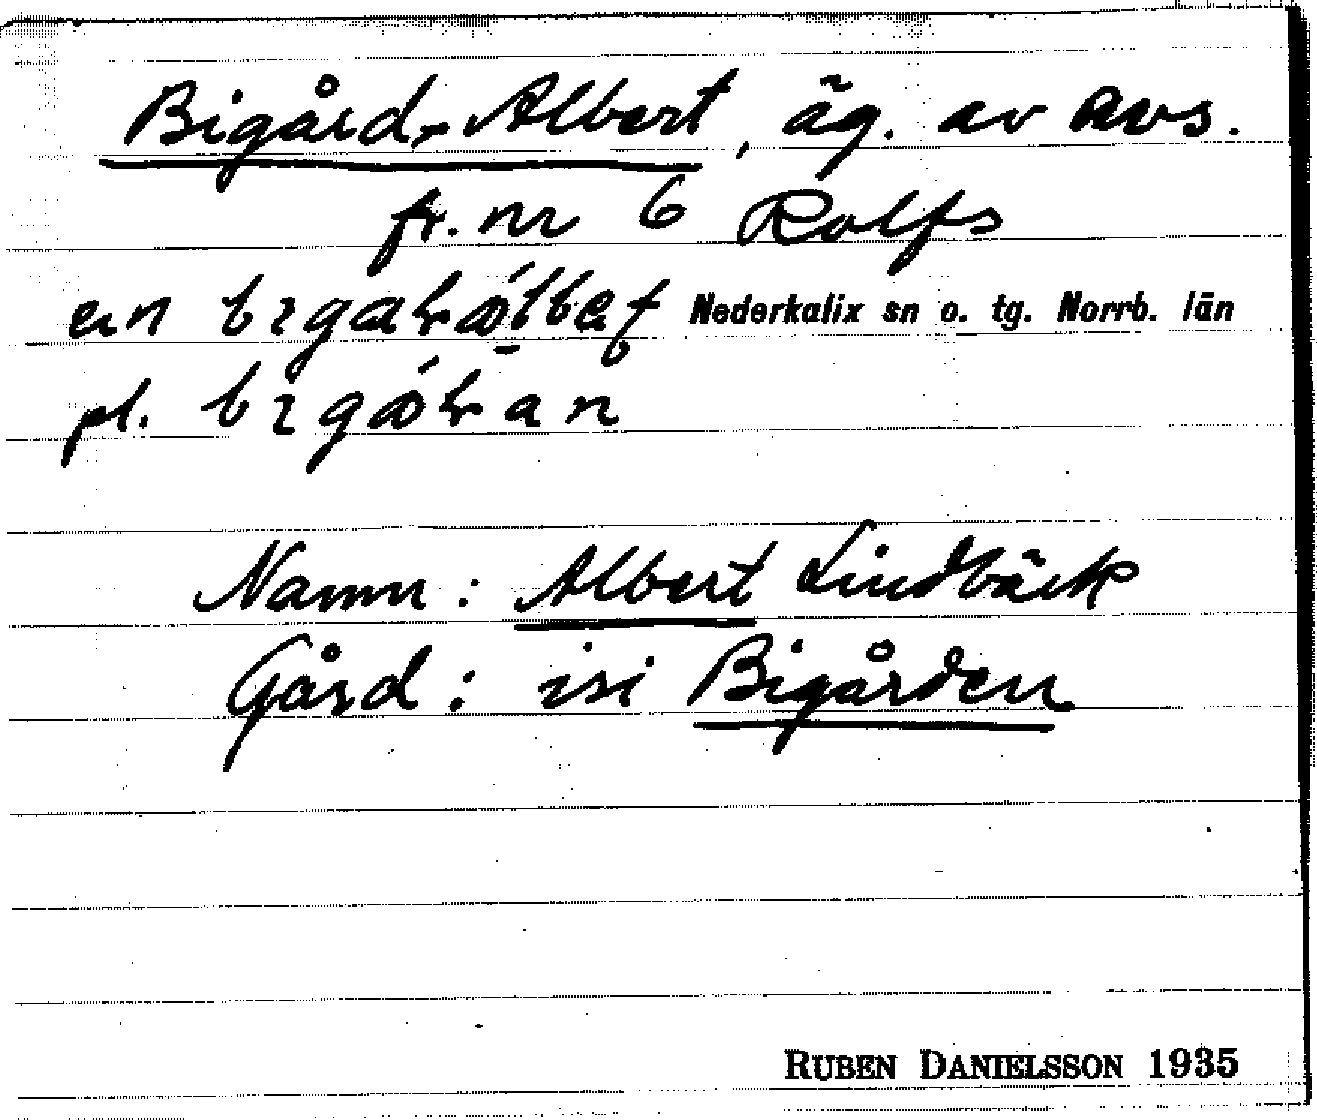 Bigård-Albert, äg. av avs.
fr. nr 6 Rolfs
en Nederkalix sn o. tg. Norrb. län
pl.
Namn: Albert Lindbäck
Gård: isi Bigården
RUBEN DANIELSSON 1935